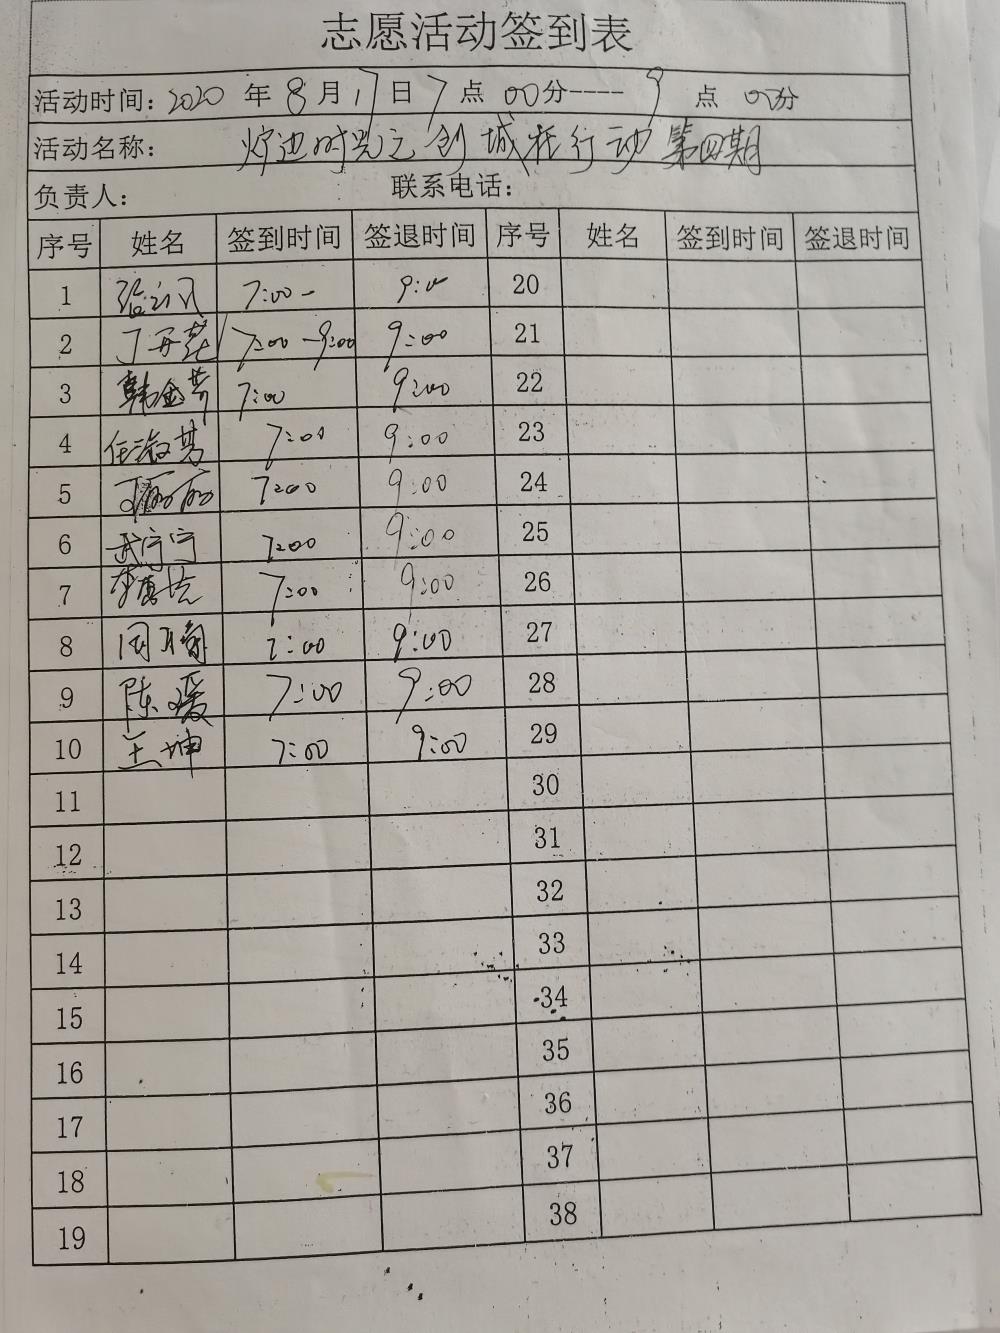 志愿活动签到表
活动时间：2020 年 8 月 17 日 7 点 00分----9 点 00分
活动名称： 炉边时光之创城在行动第四期
负责人： 联系电话：
序号 姓名 签到时间 签退时间 序号 姓名 签到时间 签退时间
1 7:00- 9:00 20
2 7:00-9:00 9:00 21
3 韩金芳 7:00 9:00 22
4 任淑芳 7:00 9:00 23
5 丁丽丽 7:00 9:00 24
6 武宁宁 7:00 9:00 25
7 7:00 9:00 26
8 7:00 9:00 27
9 陈瑷 7:00 9:00 28
10 王坤 7:00 9:00 29
11 30
12 31
13 32
14 33
15 34
16 35
17 36
18 37
19 38